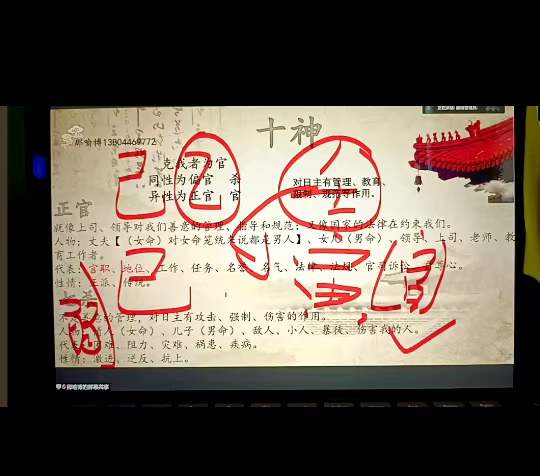 十神
郎哈博13804469772
克我者为官
同性为偏官 杀
异性为正官 官
对日主有管理、教育、
限制、规范等作用。
正官
就像上司、领导对我们善意的管理、指导和规范；又像国家的法律在约束我们。
人物：丈夫【（女命）对女命笼统来说都是男人】、女儿（男命）、领导、上司、老师、教
育工作者。
代表：官职、地位、工作、任务、名誉、名气、法律、法规、官司诉讼、责任心。
性情：正派、传统。
七杀
不怀善意的管理，对日主有攻击、强制、伤害的作用。
人物：情人（女命）、儿子（男命）、敌人、小人、暴徒、伤害我的人。
代表：困难、阻力、灾难、祸患、疾病。
性情：激进、逆反、抗上。
郎哈博的屏幕共享